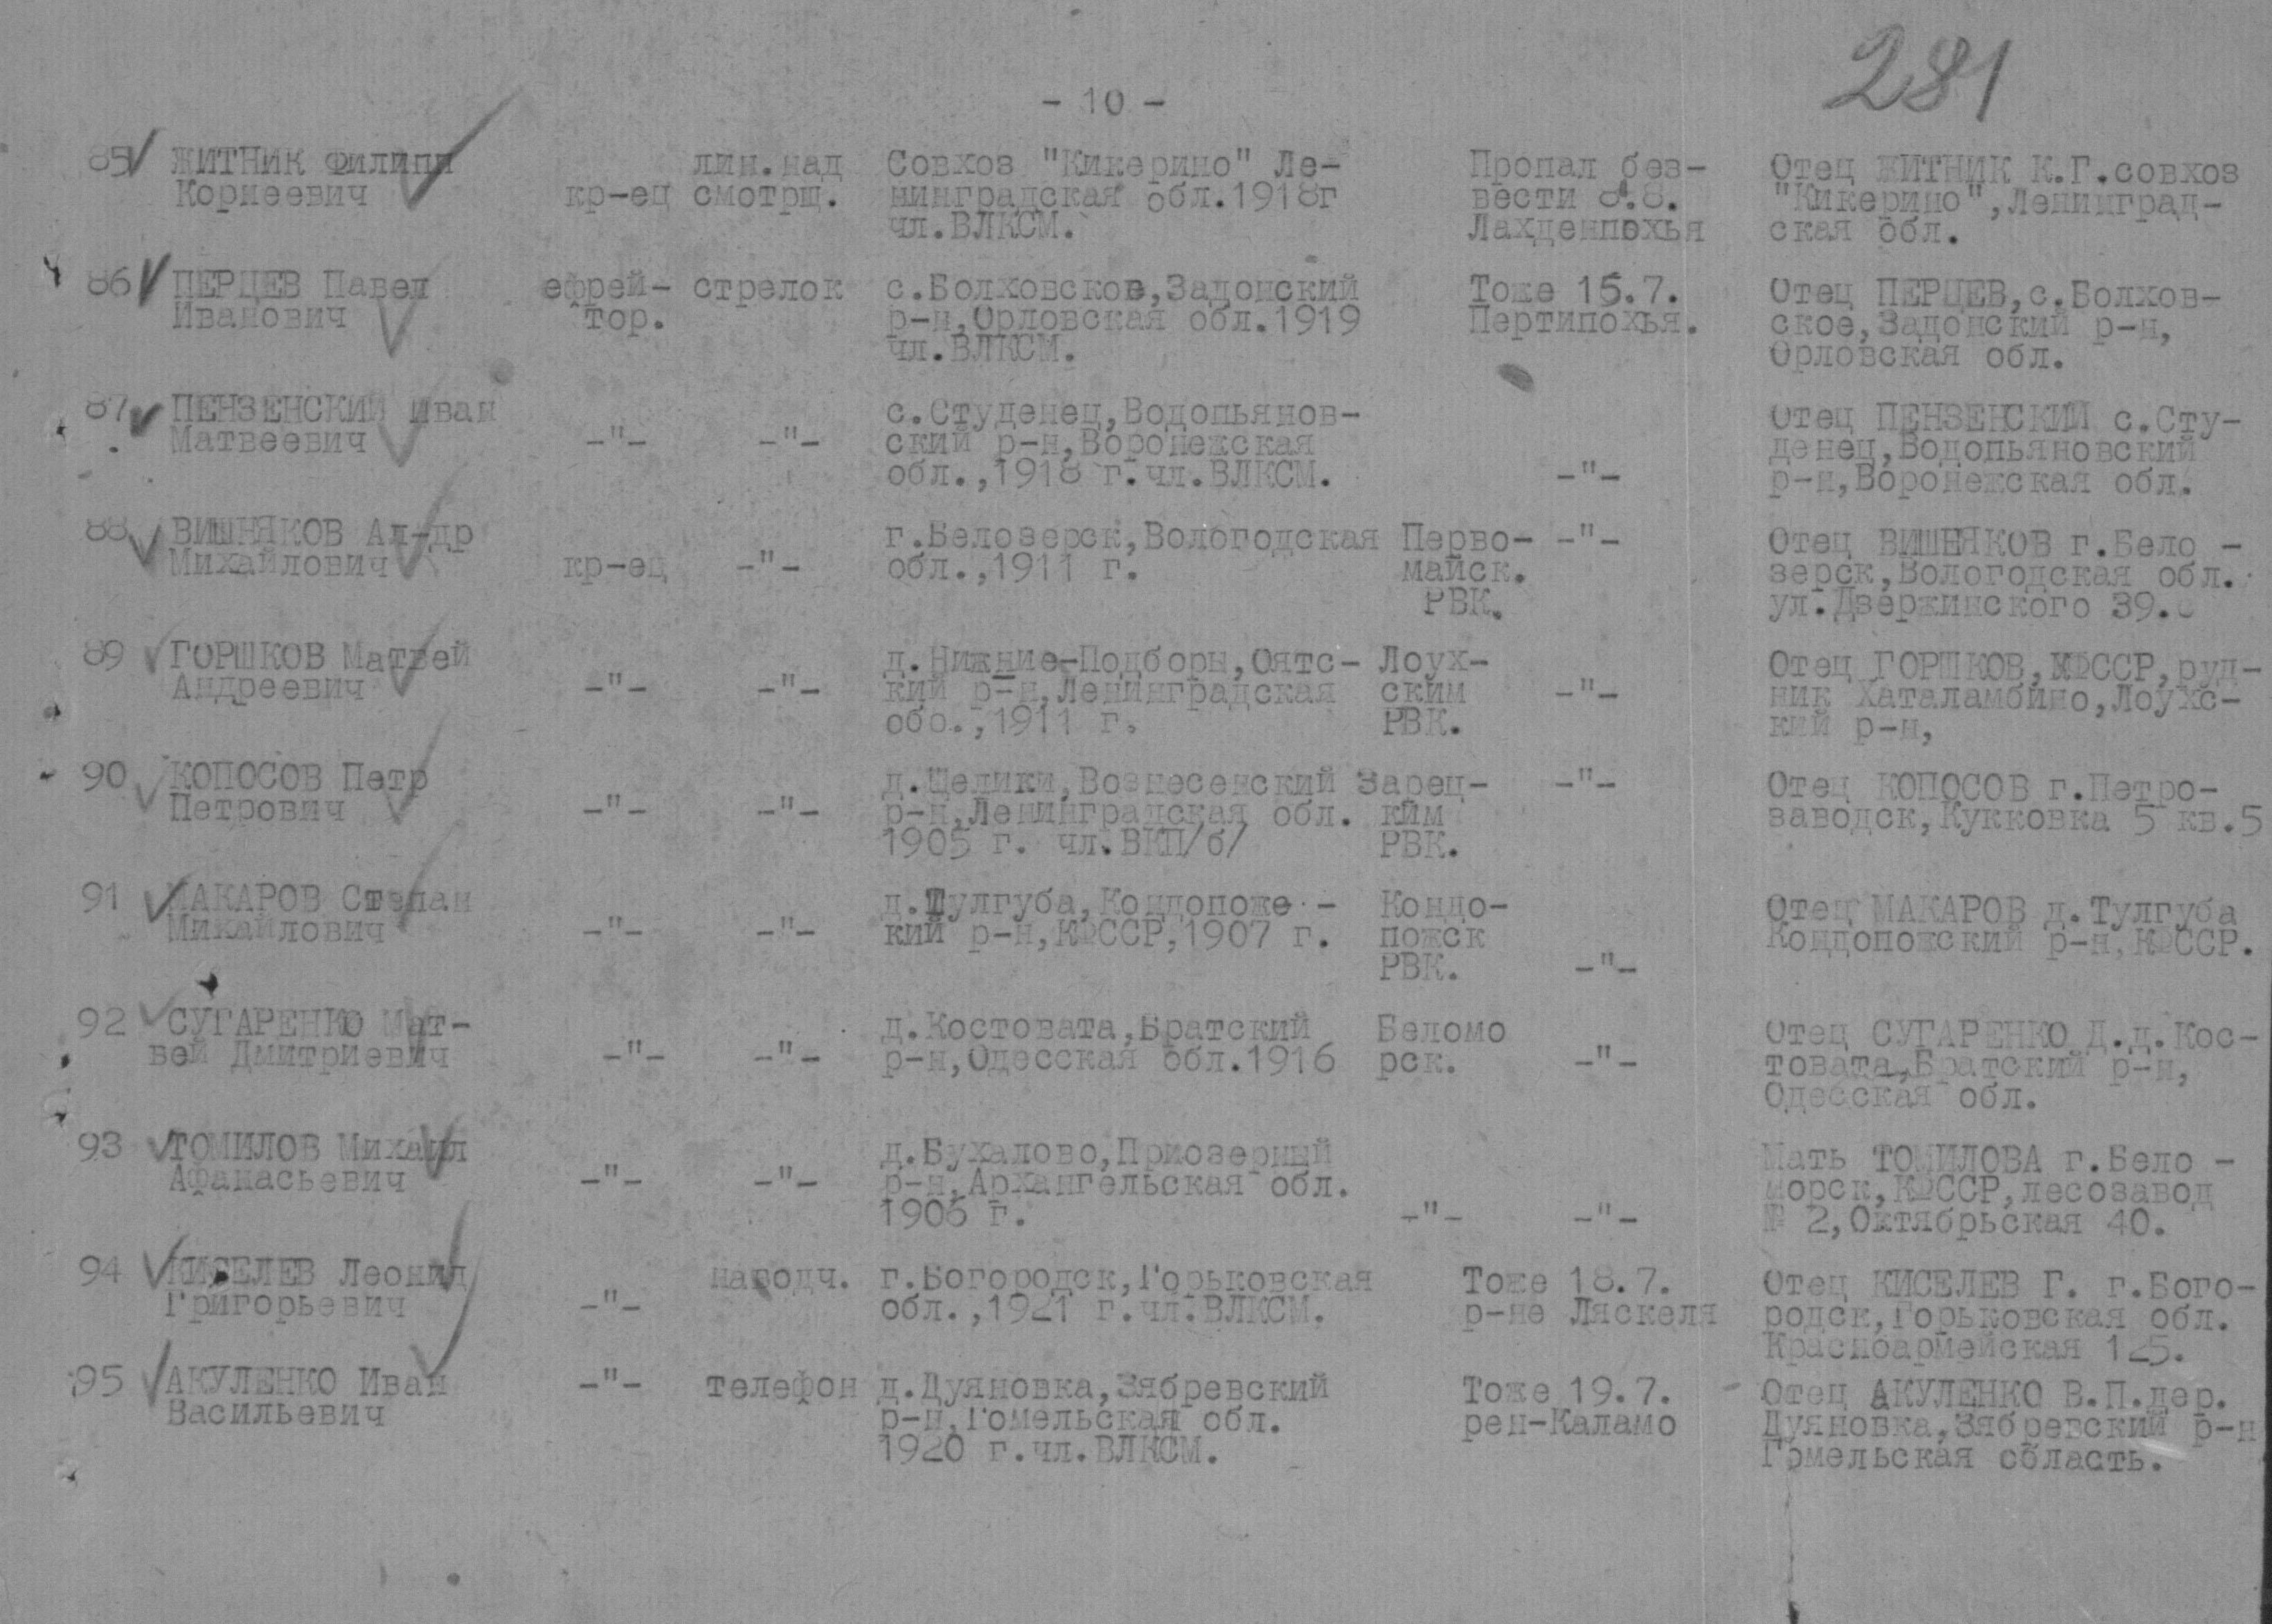 281
- 10 -
85 ЖИТНИК Филипп лин.над Совхоз "Кикерино" Ле- Пропал без- Отец ЖИТНИК К.Г.совхоз
Корнеевич кр-ец смотрщ. нинградская обл.1918г вести 8.8. "Кикерино",Ленинград-
чл.ВЛКСМ. Лахденпохья ская обл.
86 ПЕРЦЕВ Павел ефрей- стрелок с.Болховское,Задонский Тоже 15.7. Отец ПЕРЦЕВ,с.Болхов-
Иванович тор. р-н,Орловская обл.1919 Пертипохья. ское,Задонский р-н,
чл.ВЛКСМ. Орловская обл.
87 ПЕНЗЕНСКИЙ Иван с.Студенец,Водопьянов- Отец ПЕНЗЕНСКИЙ с.Сту-
Матвеевич -"- -"- ский р-н,Воронежская денец,Водопьяновский
обл.,1918 г.чл.ВЛКСМ. -"- р-н,Воронежская обл.
88 ВИШНЯКОВ Ал-др г.Белозерск,Вологодская Перво- -"- Отец ВИШНЯКОВ г.Бело -
Михайлович кр-ец -"- обл.,1911 г. майск. зерск,Вологодская обл.
РВК. ул.Дзержинского 39.
89 ГОРШКОВ Матвей д.Нижние-Подборы,Оятс- Лоух- Отец ГОРШКОВ,КФССР,руд-
Андреевич -"- -"- кий р-н,Ленинградская ским -"- ник Хаталамбино,Лоухс-
обо.,1911 г. РВК. кий р-н,
90 КОПОСОВ Петр д.Щелики,Вознесенский Зарец- -"- Отец КОПОСОВ г.Петро-
Петрович -"- -"- р-н,Ленинградская обл. ким заводск,Кукковка 5 кв.5
1905 г. чл.ВКП/б/ РВК.
91 МАКАРОВ Степан д.Тулгуба,Кондопоже - Кондо- Отец МАКАРОВ д.Тулгуба
Михайлович -"- -"- кий р-н,КФССР,1907 г. пожск Кондопожский р-н,КФССР.
РВК. -"-
92 СУГАРЕНКО Мат- д.Костовата,Братский Беломо Отец СУГАРЕНКО Д.д.Кос-
вей Дмитриевич -"- -"- р-н,Одесская обл.1916 рск. -"- товата,Братский р-н,
Одесская обл.
93 ТОМИЛОВ Михаил д.Бухалово,Приозерный Мать ТОМИЛОВА г.Бело -
Афанасьевич -"- -"- р-н,Архангельская обл. морск,КФССР,лесозавод
1906 г. -"- -"- № 2,Октябрьская 40.
94 КИСЕЛЕВ Леонид наводч. г.Богородск,Горьковская Тоже 18.7. Отец КИСЕЛЕВ Г. г.Бого-
Григорьевич -"- обл.,1921 г.чл.ВЛКСМ. р-не Ляскеля родск,Горьковская обл.
Красноармейская 125.
95 АКУЛЕНКО Иван -"- телефон д.Дуяновка,Зябревский Тоже 19.7. Отец АКУЛЕНКО В.П.дер.
Васильевич р-н,Гомельская обл. рен-Каламо Дуяновка,Зябревский р-н
1920 г.чл.ВЛКСМ. Гомельская область.